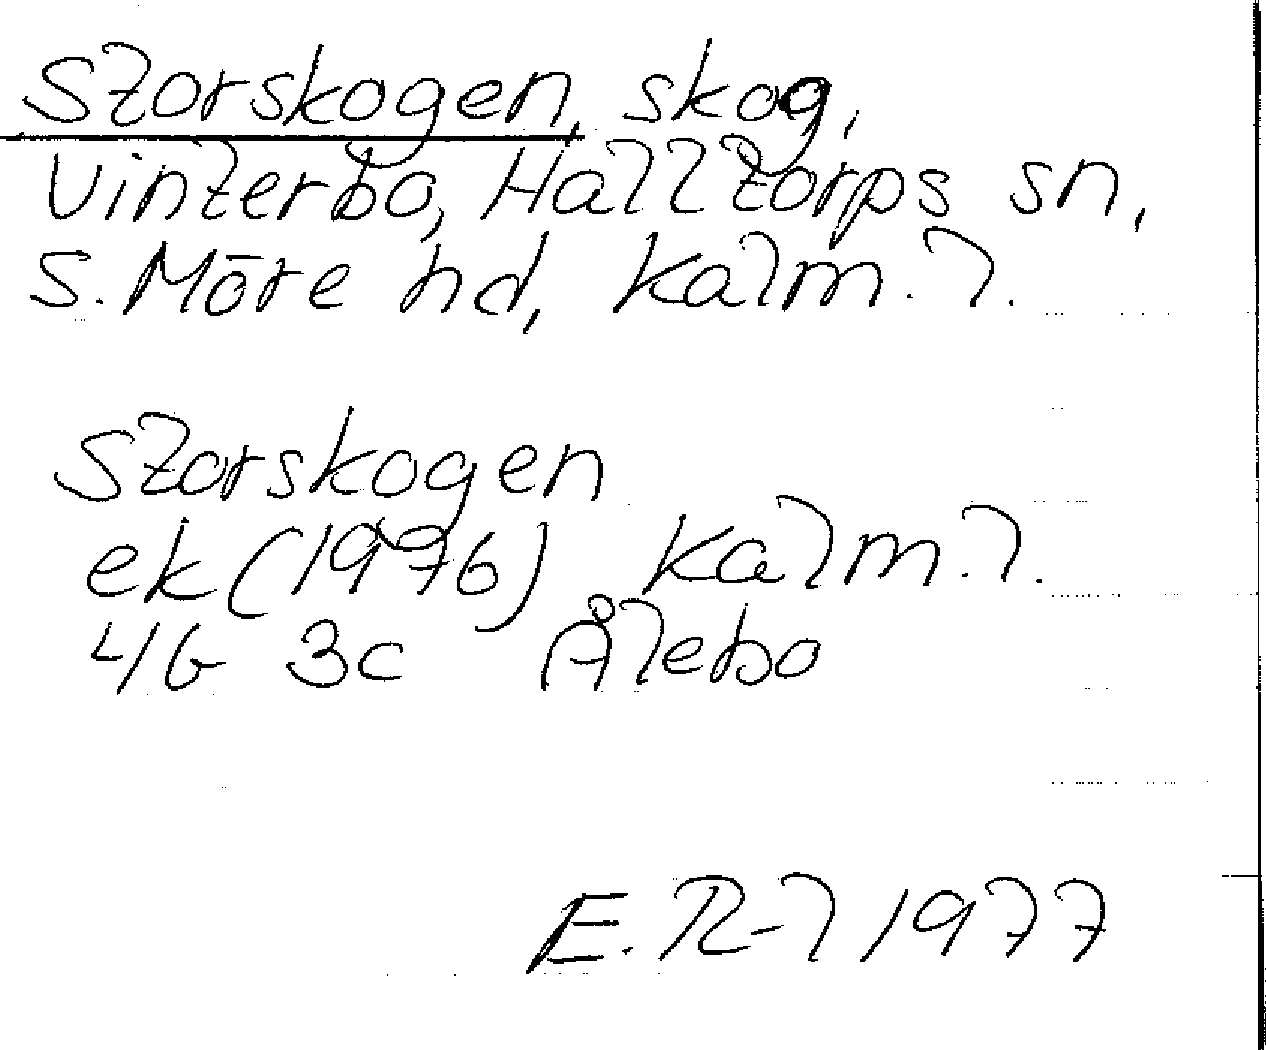 Storskogen, skog,
Vinterbo, Halltorps sn,
S. Möre hd, Kalm. l.
Storskogen
ek (1976) Kalm. l.
4G 3c Ålebo
E. R-l 1977